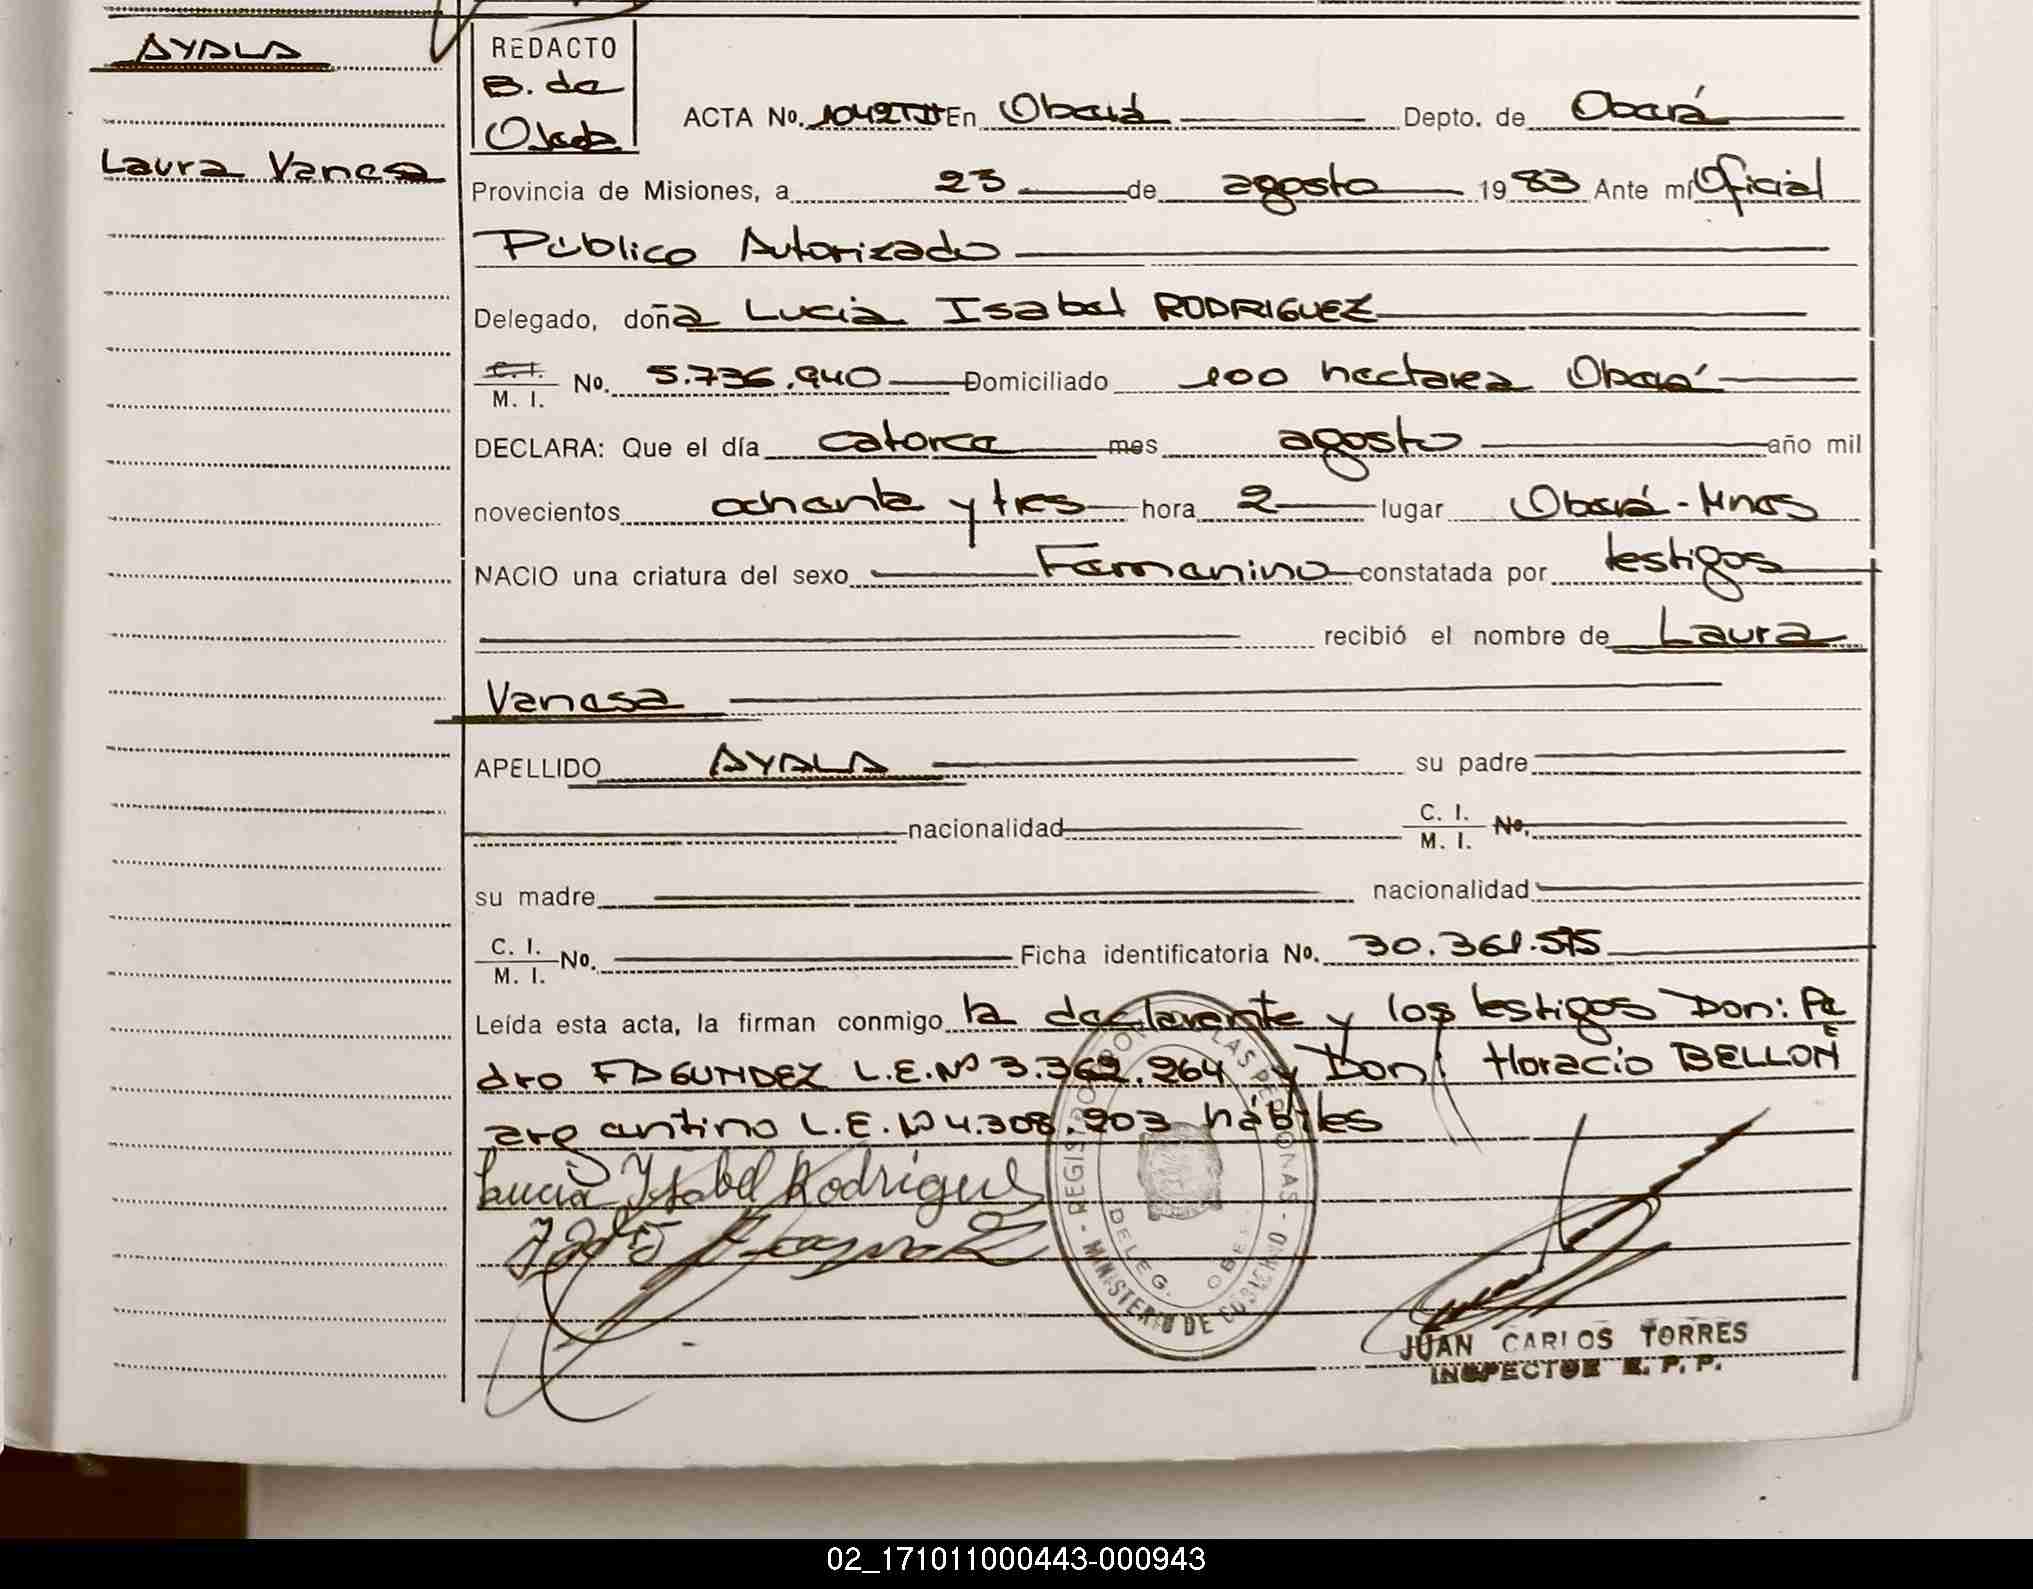 AYALA
REDACTO
B. de
Ojeda
ACTA No. 1042TII En Oberá Depto. de Oberá
Laura Vanesa
Provincia de Misiones, a 23 de agosto 1983 Ante mí Oficial
Público Autorizado
Delegado, doña Lucia Isabel RODRIGUEZ
C. I.
M. I. No. 5.736.940 Domiciliado 100 hectarea Oberá
DECLARA: Que el día catorce mes agosto año mil
novecientos ochenta y tres hora 2 lugar Oberá - Mnes
NACIO una criatura del sexo Femenino constatada por testigos
recibió el nombre de Laura
Vanesa
APELLIDO AYALA su padre
nacionalidad C. I.
M. I. No.
su madre nacionalidad
C. I.
M. I. No. Ficha identificatoria No. 30.361.575
Leída esta acta, la firman conmigo la declarante y los testigos Don: Pe
dro FAGUNDEZ L.E.Nº 3.362.264 y Don Horacio BELLON
argentino L.E.Nº 4.308.203 hábiles
Lucia Isabel Rodriguez
REGISTRO PROV. LAS PERSONAS - MINISTERIO DE GOBIERNO
DELEG. OBE
JUAN CARLOS TORRES
INSPECTOR R. P. P.
02_171011000443-000943